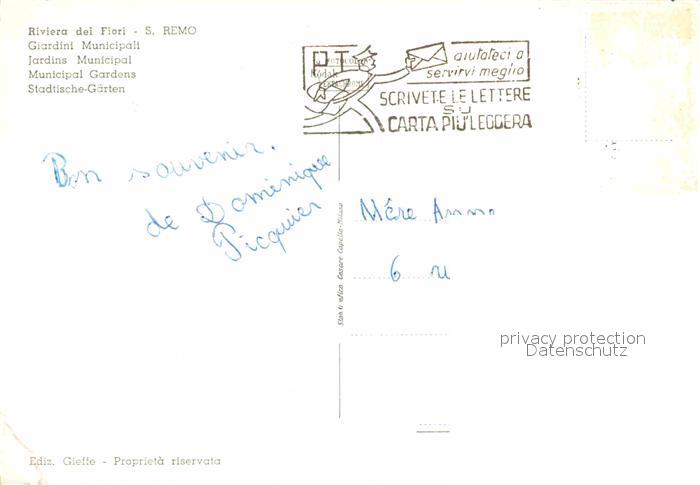 Riviera dei Fiori - S. REMO
Giardini Municipali
Jardins Municipal
Municipal Gardens
Stadtische-Gärten
PT
aiutateci a
servirvi meglio
SCRIVETE LE LETTERE
SU
CARTA PIÙ LEGGERA
Kodak
Bon souvenir.
de Dominique
Picquier
Mère Anna
6
privacy protection
Datenschutz
Cesare Capello-Milano
Ediz. Gieffe - Proprietà riservata